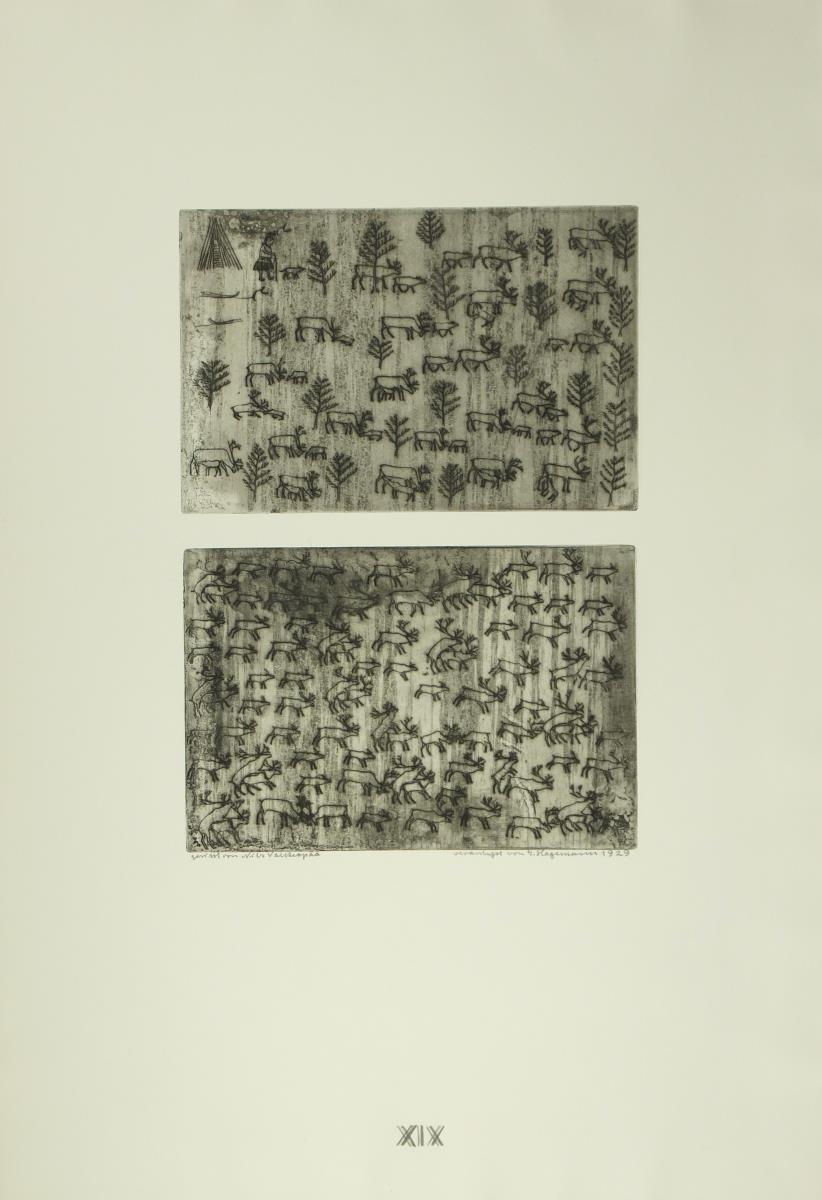 geritzt von Nils Valkeapää
veranlaßt von G. Hagemann 1929
XIX